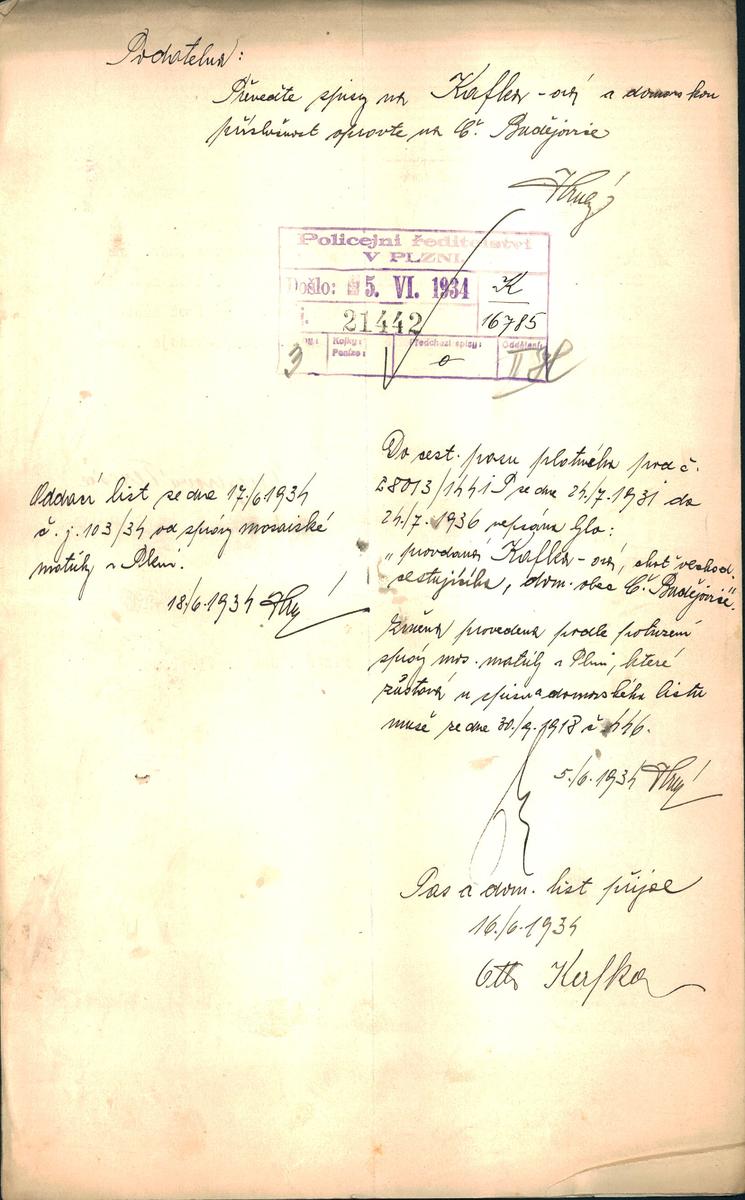 Podatelna:
Převeďte spisy na Kafka-ová a domovskou
příslušnost opravte na Č. Budějovice
Hrubý
Policejní ředitelství
V PLZNI.
Došlo: 5. VI. 1934
K
21442
16785
3
Kolky:
Peníze:
Předchozí spisy:
0
Oddělení:
II
Oddací list ze dne 17./6 1934
č. j. 103/34 od správy mosaiské
matriky v Plzni.
18/6. 1934
Do cest. pasu platného pod č.
28013/1441 ze dne 24./7. 1931 do
24./7. 1936 vepsána
„provdaná Kafka-ová, choť obchod.
cestujícího, dom. obec Č. Budějovice".
Změna provedena podle potvrzení
správy mos. matriky v Plzni, které
zůstává u spisu a domovského listu
muže ze dne 30./9. 1918 č. 446.
5./6. 1934
Pas a dom. list přijal
16./6. 1934
Otto Kafka